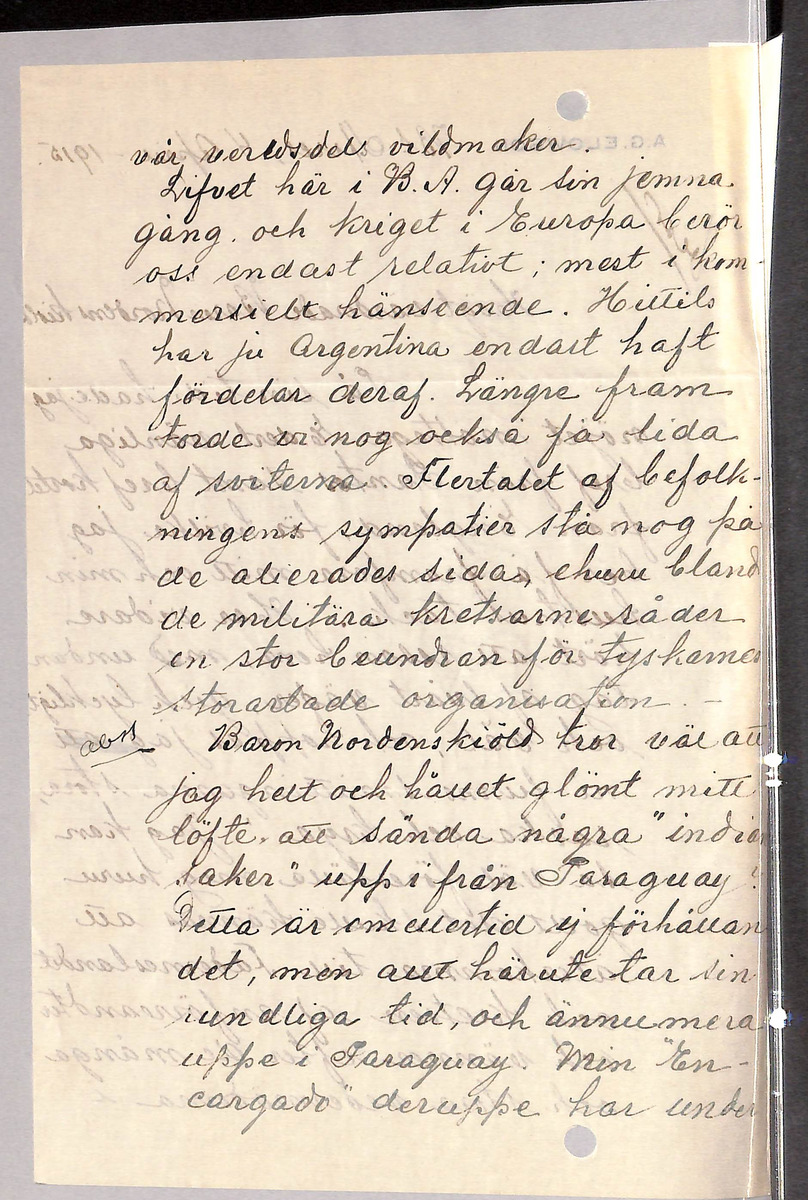 vår verldsdels vildmaker.
Lifvet här i B.A. går sin jemna
gång. och kriget i Europa berör
oss endast relativt; mest i kom-
mersielt hänseende. Hittils
har ju Argentina endast haft
fördelar deraf. Längre fram
torde vi nog också få lida
af sviterna. Flertalet af befolk-
ningens sympatier stå nog på
de alierades sida, ehuru bland
de militära kretsarne råder
en stor beundran för tyskarnes
storartade organisation. -
Baron Nordenskiöld tror väl att
jag helt och hållet glömt mitt
löfte att sända några "indian
saker" upp ifrån Paraguay?
Detta är emellertid ej förhållan
det, men allt härute tar sin
rundliga tid, och ännu mera
uppe i Paraguay. Min "En-
cargado" deruppe har under